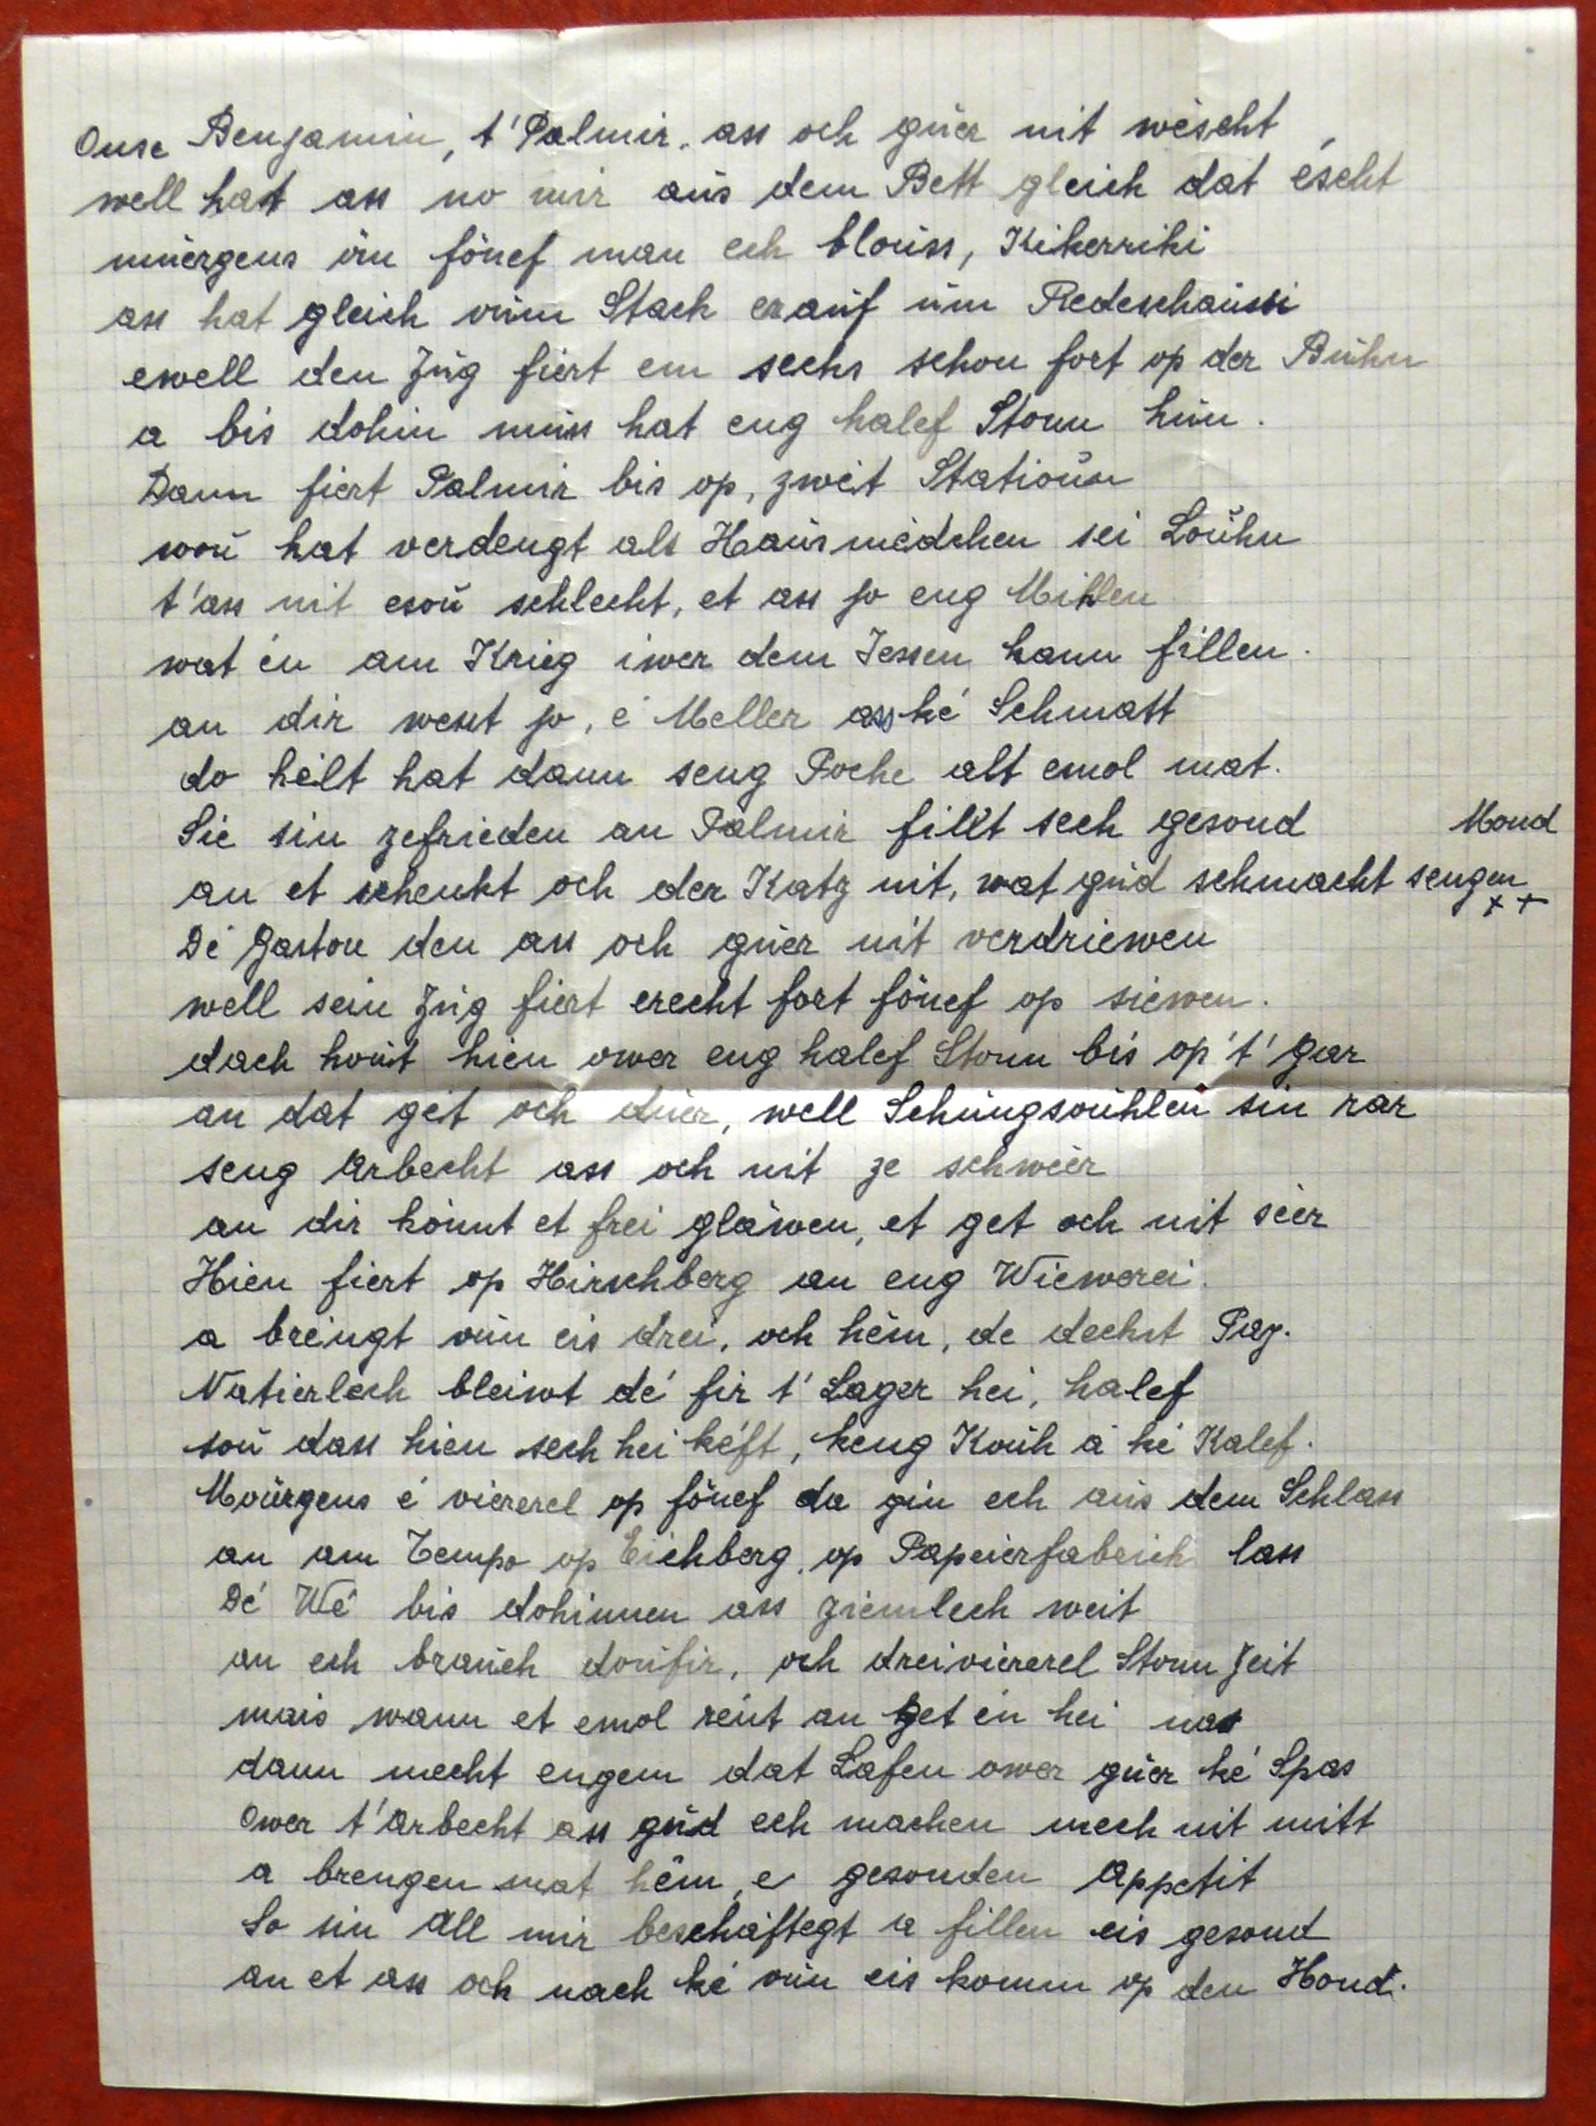 Onse Benjamin, t'Palmir. ass och guer nit wëscht,
well hat ass no mir aus dem Bett gleich dat éscht
muergens ŭm fönef man ech blouss, Kikerriki
ass hat gleich vŭm Stach erauf ŭm Redeschaussi
ewell den Zŭg fiert em sechs schon fort op der Buhn
a bis dohin muss hat eng halef Stonn hŭn.
Dann fiert Palmir bis op, zwét Statioŭn
woŭ hat verdengt als Hausmëdchen sei Loŭhn
t'ass nit esoŭ schlecht, et ass jo eng Millen
wat én am Krieg iwer dem Iessen kann fillen.
an dir wesst jo, é Meller ass ké Schmatt
do hëlt hat dann seng Poche alt emol mat.
Sie sin zefrieden an Palmir fillt sech gesond
an et schenkt och der Katz nit, wat gŭd schmacht sengem Mond
++
Dé Gaston den ass och guer nit verdriewen
well sein Zŭg fiert erecht fort fönef op siewen.
dach houst hien ower eng halef Stonn bis op't' Gar
an dat gét och duer, well Schungsouhlen sin rar
seng Arbecht ass och nit ze schwéer
an dir könnt et frei gläwen, et get och nit séer
Hien fiert op Hirschberg an eng Wiewerei.
a bréngt vŭn eis drei, och hém, de dechst Pay.
Natierlech bleiwt dé fir t'Lager hei, halef
soŭ dass hien sech hei kéft, keng Kouh a ké Kalef.
Moŭrgens é viererel op fönef da gin ech aus dem Schlass
an am Tempo op Eichberg, op Papeierfabrick lass
Dé Wé bis dohinnen ass ziemlech weit
an ech brauch doufir, och dreiviererel Stonn Zeit
mais wann et emol rént an get én hei nass
dann mecht engem dat Lafen ower guer ké Spas
Ower t'Arbecht ass gŭd ech machen mech nit mitt
a brengen mat hém, e gesonden Appetit
So sin All mir beschäftegt a fillen eis gesond
an et ass och nach ké vŭn eis komm op den Hond.